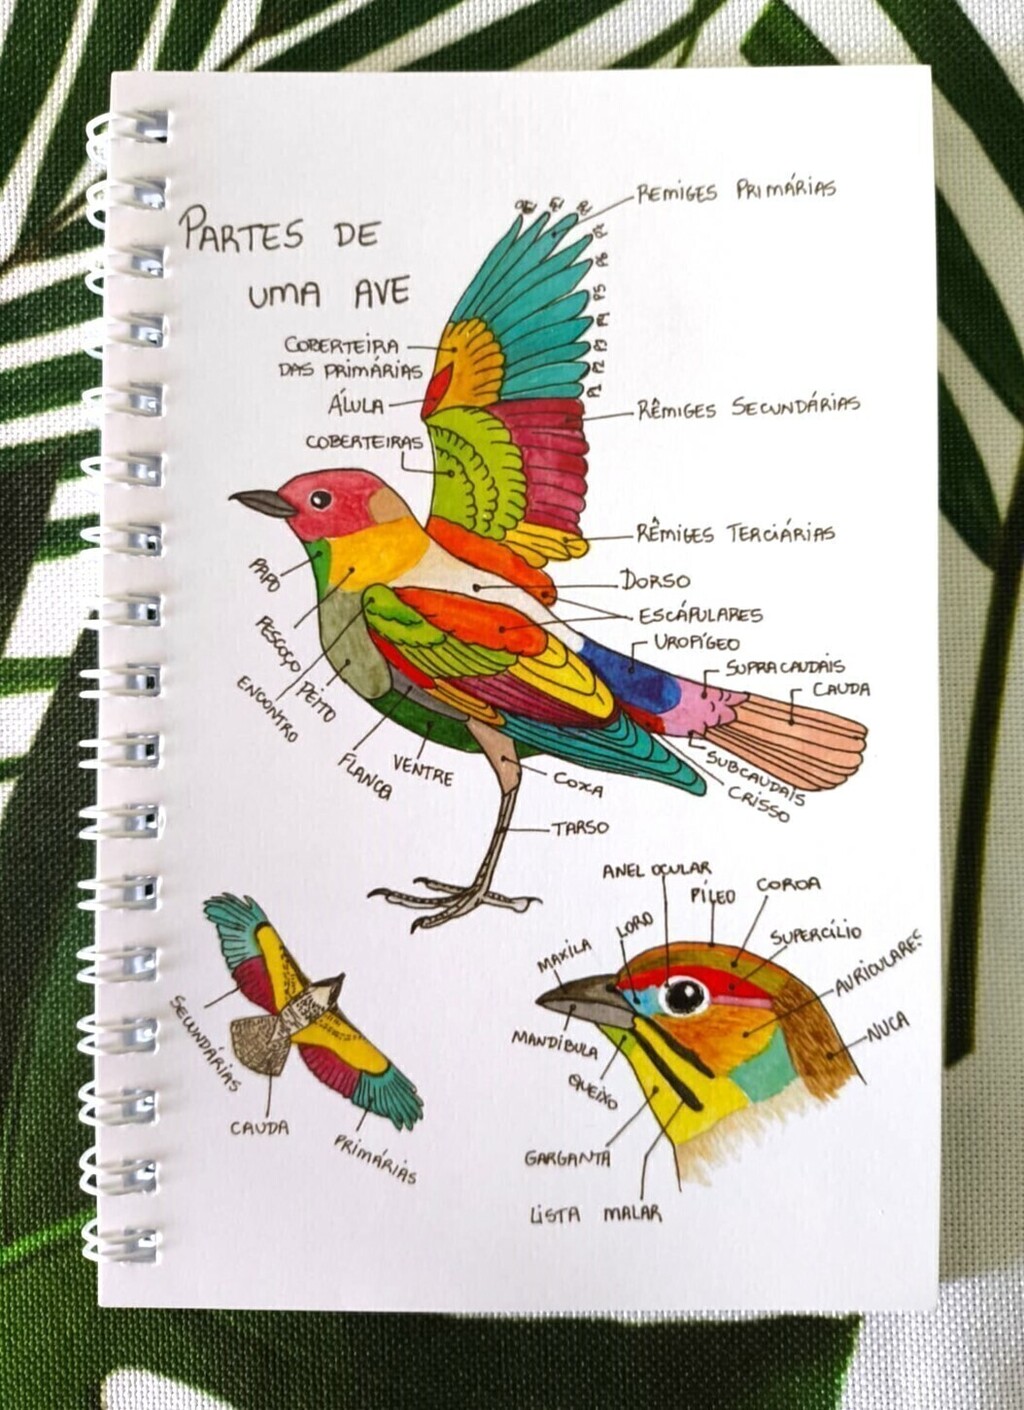 PARTES DE
UMA AVE
REMIGES PRIMÁRIAS
P7
P6
P5
P4
P3
P2
P1
COBERTEIRA
DAS PRIMÁRIAS
ÁLULA
COBERTEIRAS
RÊMIGES SECUNDÁRIAS
RÊMIGES TERCIÁRIAS
DORSO
ESCÁPULARES
UROPÍGEO
SUPRACAUDAIS
CAUDA
PAPO
PESCOÇO
ENCONTRO
PEITO
FLANCO
VENTRE
COXA
SUBCAUDAIS
CRISSO
TARSO
ANEL OCULAR
PÍLEO
COROA
LORO
SUPERCÍLIO
MAXILA
AURICULARES
NUCA
MANDÍBULA
QUEIXO
GARGANTA
LISTA MALAR
SECUNDÁRIAS
CAUDA
PRIMÁRIAS